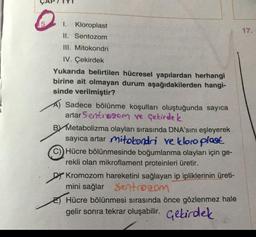 I. Kloroplast
II. Sentozom
III. Mitokondri
IV. Çekirdek
Yukarıda belirtilen hücresel yapılardan herhangi
birine ait olmayan durum aşağıdakilerden hangi-
sinde verilmiştir?
A) Sadece bölünme koşulları oluştuğunda sayıca
artar Sentrozom ve Çekirdek
B) Metabolizma olayları sırasında DNA'sını eşleyerek
sayıca artar mitokondri ve kloroplast
C) Hücre bölünmesinde boğumlanma olayları için ge-
rekli olan mikroflament proteinleri üretir.
D) Kromozom hareketini sağlayan ip ipliklerinin üreti-
mini sağlar Sentrozom
E) Hücre bölünmesi sırasında önce gözlenmez hale
gelir sonra tekrar oluşabilir. Çekirdek
17.